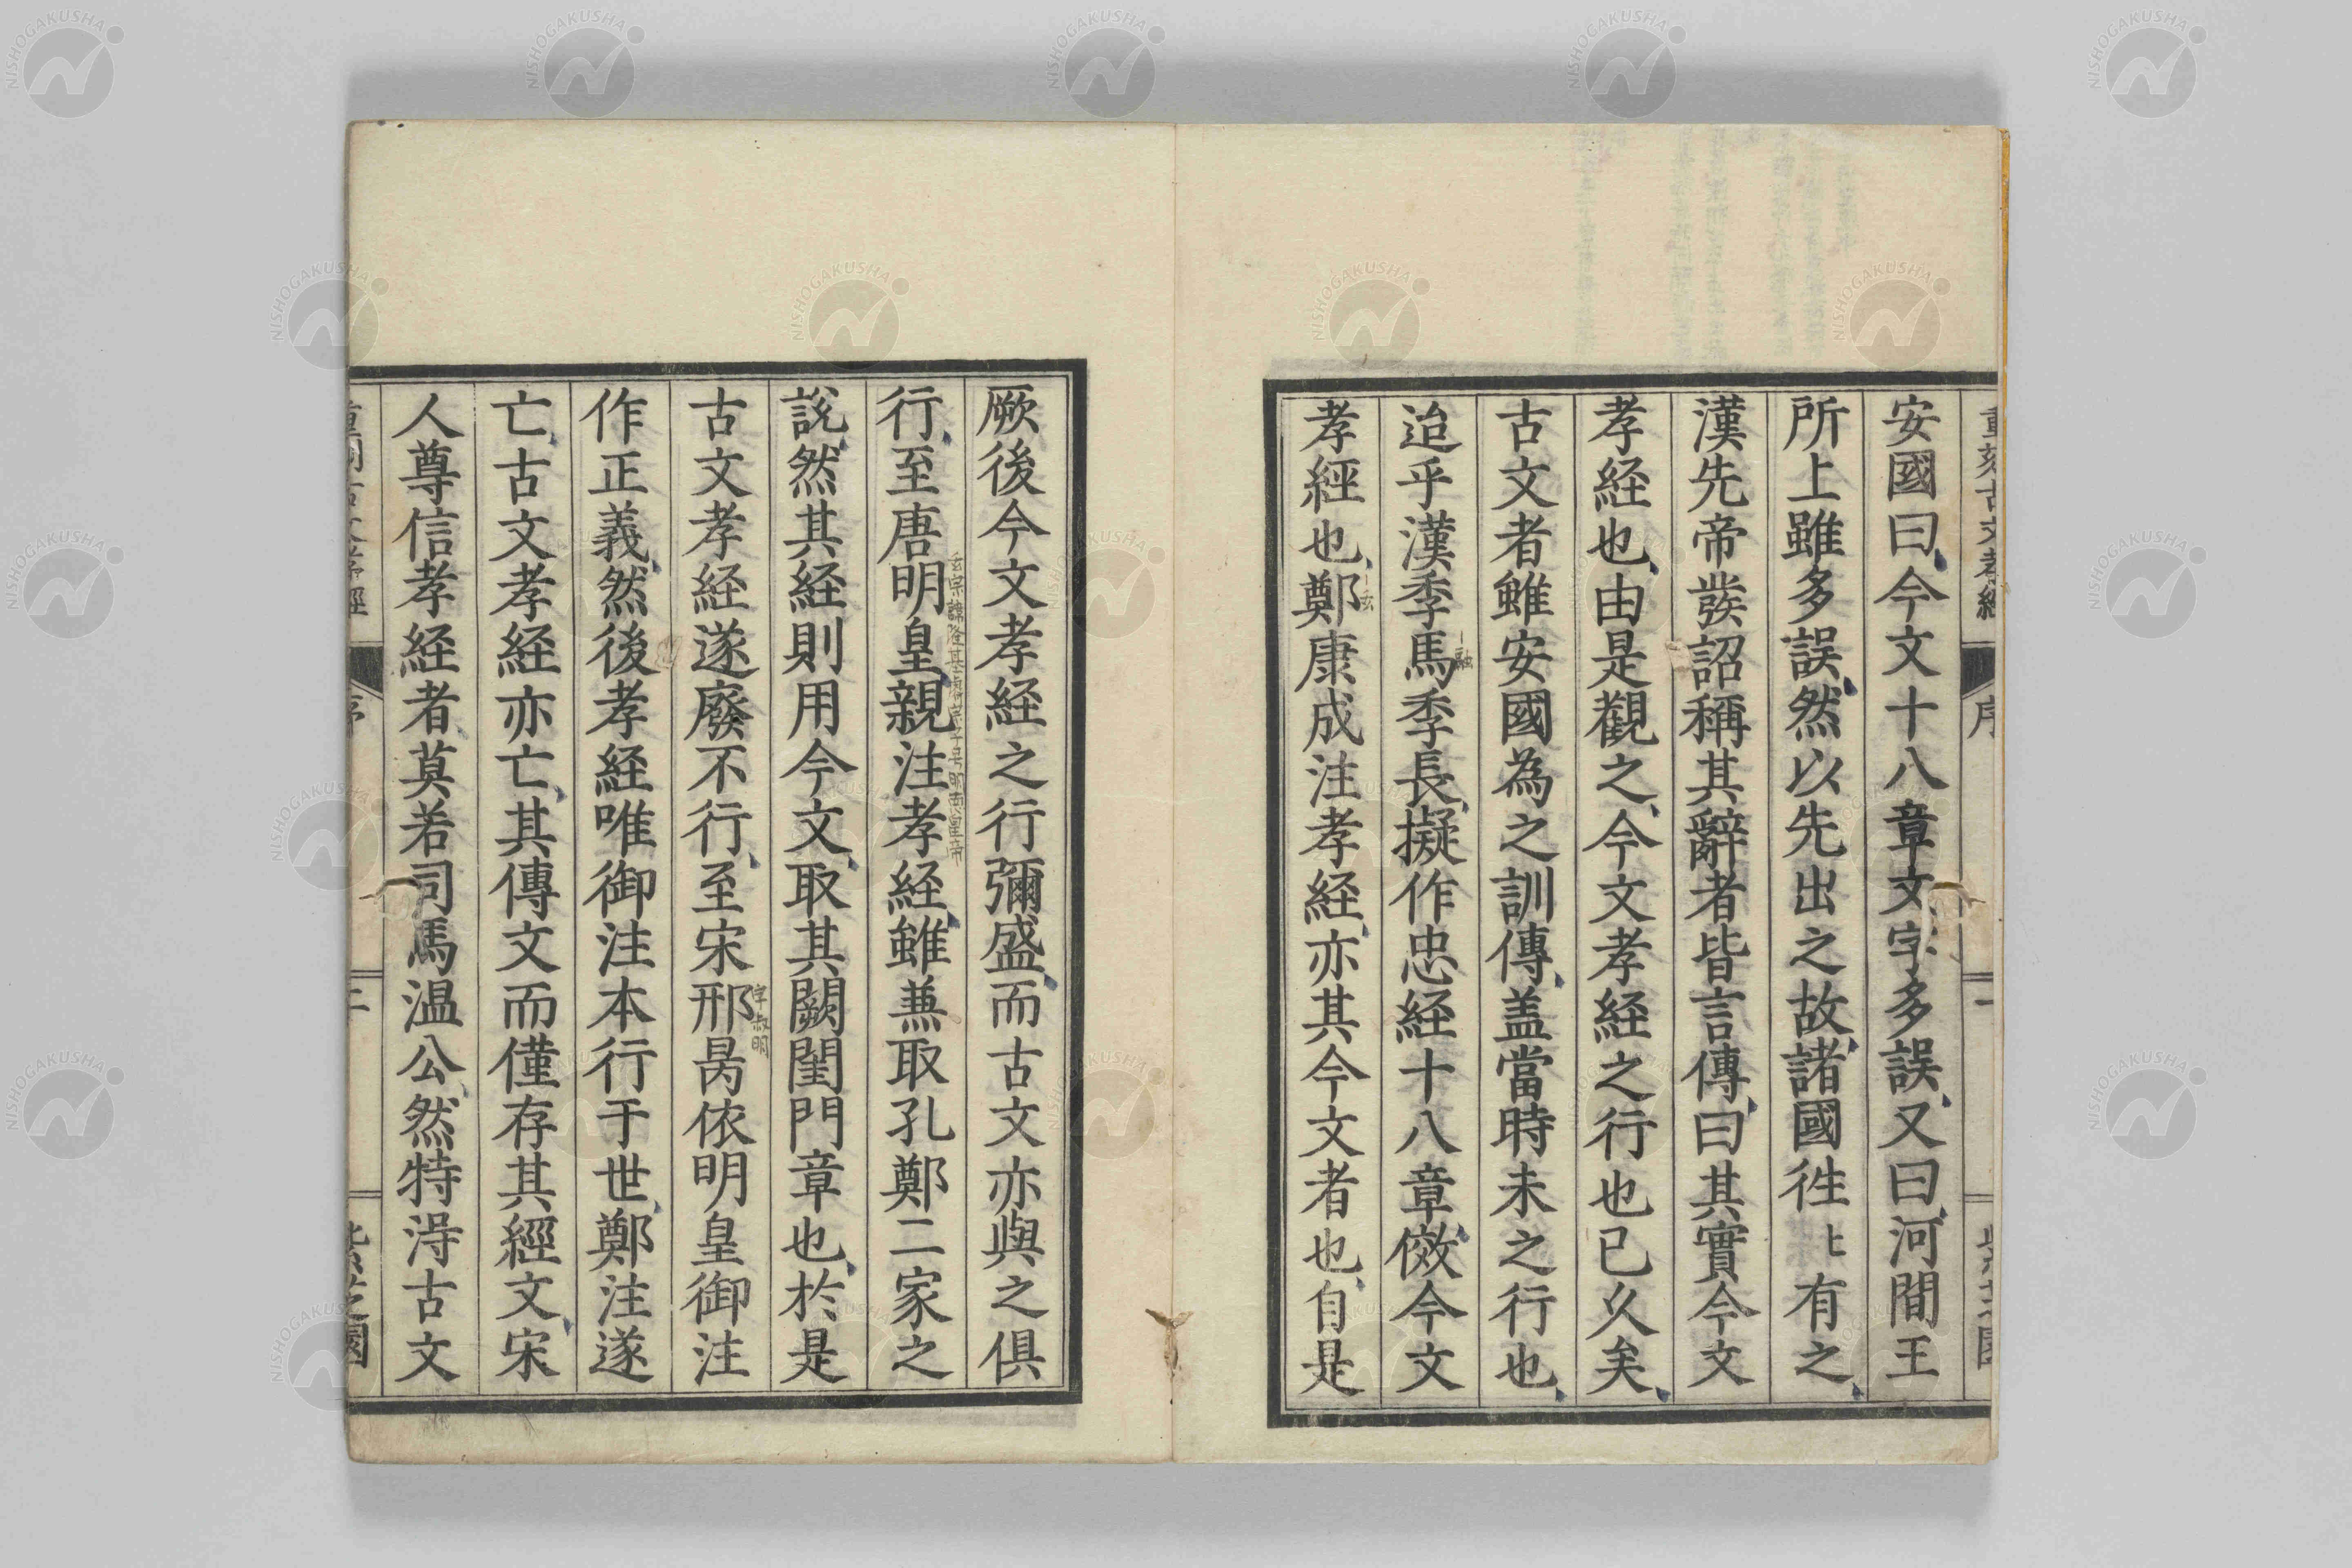 安國曰今文十八章文字多誤又曰河間王
所上雖多誤然以先出之故諸國徃〻有之
漢先帝發詔稱其辭者皆言傳曰其實今文
孝経也由是觀之今文孝経之行也已久矣
古文者雖安國為之訓傳盖當時未之行也
迨乎漢季馬季長擬作忠経十八章倣今文
融
孝經也鄭康成注孝経亦其今文者也自是
玄
厥後今文孝経之行彌盛而古文亦與之俱
行至唐明皇親注孝経雖兼取孔鄭二家之
玄宗諱隆基
說然其経則用今文取其闕閨門章也於是
古文孝経遂廢不行至宋邢昺依明皇御注
字叔明
作正義然後孝経唯御注本行于世鄭注遂
亡古文孝経亦亡其傳文而僅存其經文宋
人尊信孝経者莫若司馬温公然特淂古文
序
紫芝園
NISHOGAKUSHA